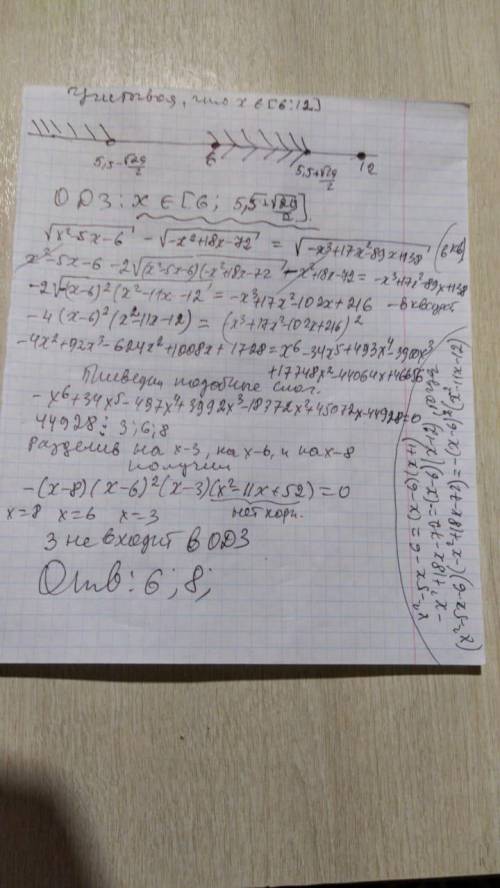 Учитывая, что x ∈ [6;12]
5,5-√29/2 6 5,5+√29/2 12
ОДЗ: x ∈ [6; 5,5+√29/2].
√x²-5x-6 - √-x²+18x-72 = √-x³+17x²-89x+138 (в кв)
x²-5x-6 -2√(x²-5x-6)(-x²+18x-72 -x²+18x-72 = -x³+17x²-89x+138
-2√-(x-6)²(x²-11x-12 = -x³+17x²-102x+216 - в квадрат
-4(x-6)²(x²-11x-12) = (x³+17x²-102x+216)²
-4x⁴+92x³-624x²+1008x+1728 = x⁶-34x⁵+493x⁴-3900x³
+17748x²-44064x+46656
Приведём подобные слаг.
-x⁶+34x⁵-497x⁴+3992x³-18372x²+45072x-44928=0
44928 ⋮ 3; 6; 8
Разделив на x-3, на x-6, и на x-8
получим
-(x-8)(x-6)²(x-3)(x²-11x+52)=0
x=8 x=6 x=3 нет корн.
3 не входит в ОДЗ
Отв: 6; 8;
x²-5x-6=(x-6)(x+1)
-x²+18x-72=-(x-6)(x-12), тогда
(x²-5x-6)(-x²+18x-72)=-(x-6)²(x²-11x-12)